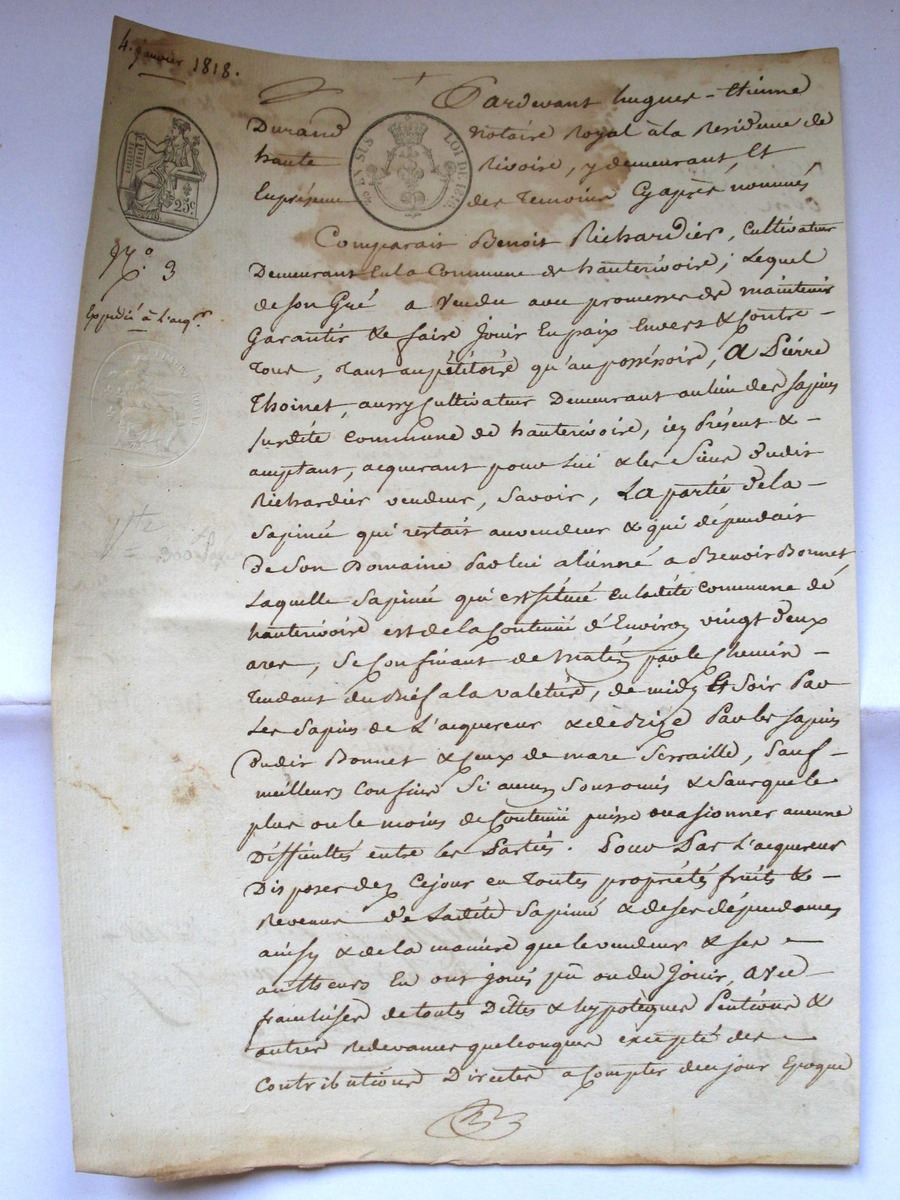 4. janvier 1818.
Pardevant hugues-Etienne
Durand notaire Royal à la Residence de
haute Rivoire, y demeurant, Et
En présence des Temoins Cyaprés nommés
25c
LOI DE 1816
N.o 3
Expédié à L'acqr
Comparait Benoit Richardier, Cultivateur
Demeurant En la Commune de hauterivoire; Lequel
de son Gré a vendu avec promesse de maintenir
Garantir & faire Jouir En paix Envers & Contre
Tous, Tant au pétitoire qu'au possésoire, A Piérre
Thoinet, aussy Cultivateur Demeurant au lieu des sapins
Susdite Commune de hauterivoire, icy Présent &
acceptant, acquerant pour Lui & les Siens dudit
Richardier vendeur, Savoir, La partie de la
Sapinée qui restait au vendeur & qui dépendait
De Son Domaine Par lui aliénné a Benoit Bonnet
Laquelle Sapinée qui est située en ladite Commune de
hauterivoire est de la Contenue d'Environ vingt Deux
ares, Se Confinant de matin par le Chemin
Tendant du à la valetire, de midy Et Soir Par
Les Sapins de L'acquereur & de Bize Par les sapins
Dudit Bonnet & Ceux de marc Serraille, Sauf
meilleurs Confins Si aucuns Sont omis & Sans que le
plus ou le moins de Contenue puisse ocasionner aucune
Difficultés entre les Parties. Pour Par L'acquereur
Disposer dez Cejour en Toutes propriétés fruits &
Revenus de Ladite Sapinée & de ses dépendances
ainsy & de la maniere que le vendeur & ses
autheurs En ont jouis pu ou du Jouir, avec
franchises de toutes Dettes & hypoteques Pentions &
autres Redevances quelconques excepté des
Contributions Directes a Compter de ce jour Epoque